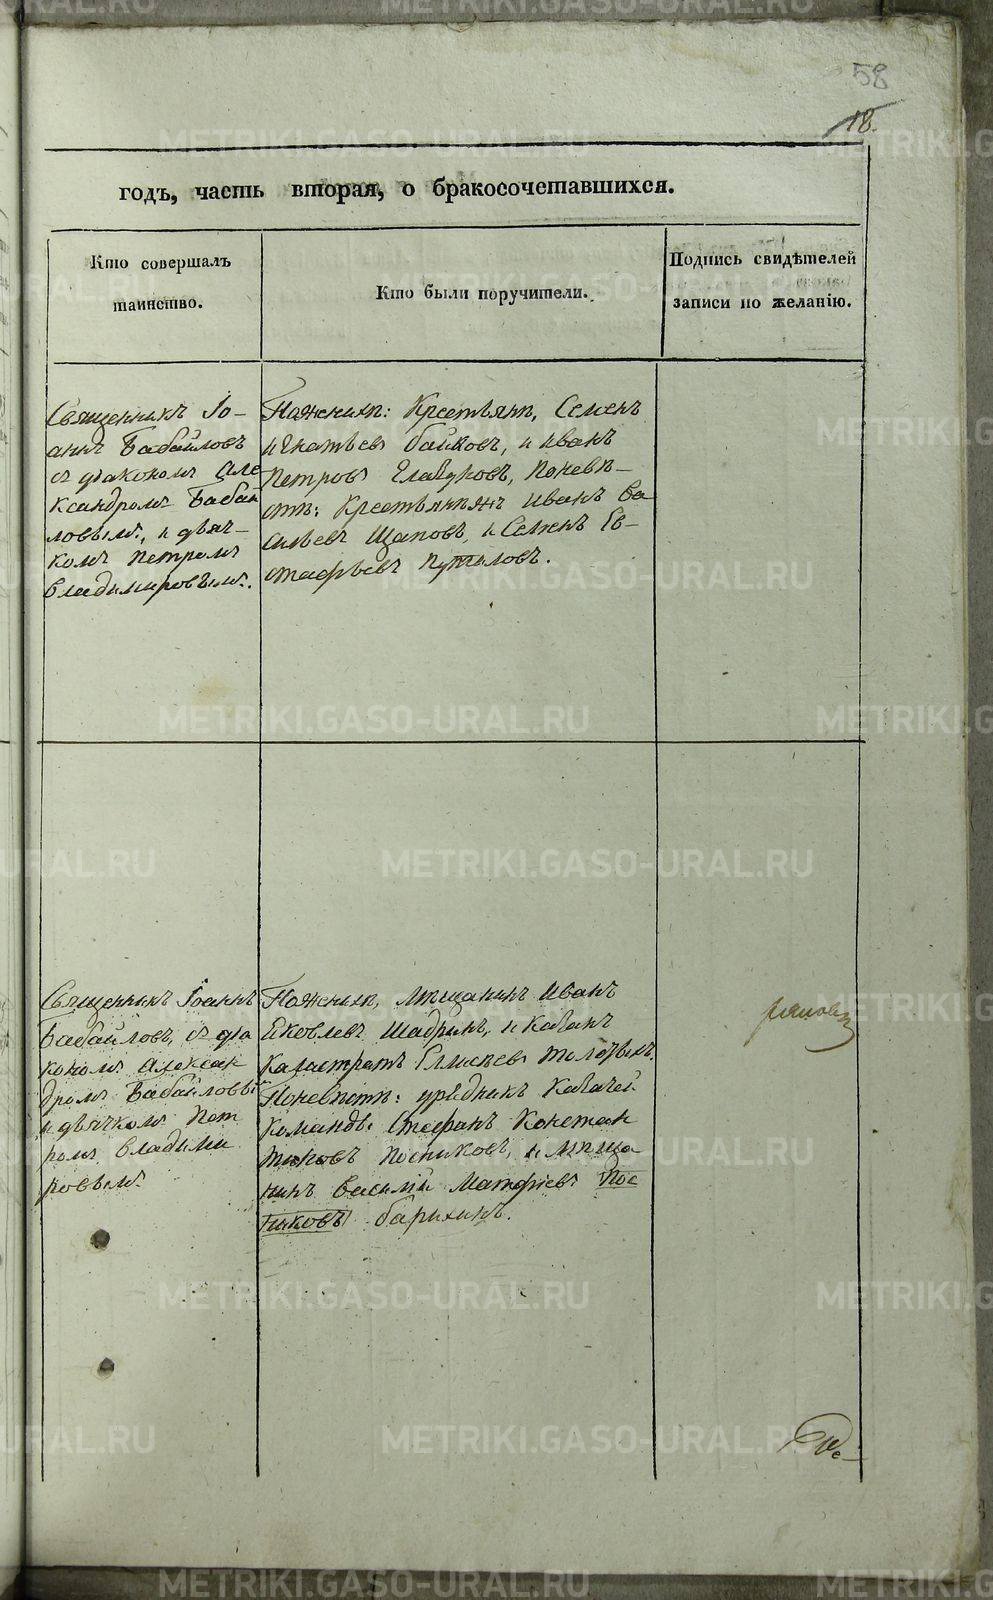 58
18.
годъ, часть вторая, о бракосочетавшихся.
Кто совершалъ
таинство.
Кто были поручители.
Подпись свидѣтелей
записи по желанію.
Священникъ Іо-
аннъ Бабайловъ
съ діакономъ Але
ксандромъ Бабай
ловымъ, и дьяч-
комъ Петромъ
Владимировымъ.
По женихѣ: Крестьяне, Семенъ
Игнатьевъ Байковъ, и Иванъ
Петровъ Гладковъ, По невѣ-
стѣ: Крестьяне Иванъ Ва
сильевъ Щаповъ, и Семенъ Ев-
стафьевъ Путиловъ.
Священникъ Іоаннъ
Бабайловъ, съ діа
кономъ Алексан
дромъ Бабайловы
и дьячкомъ Пет
ромъ Владими
ровымъ.
По женихѣ, мѣщанинъ Иванъ
Яковлевъ Шадринъ, и Козакъ
Калистратъ Елисѣевъ
По невѣстѣ: урядникъ Козачей
команды Стефанъ Констан
тиновъ Посниковъ, и мѣща
нинъ Василій Матфѣевъ Пос
никовъ Барихинъ.
METRIKI.GASO-URAL.RU